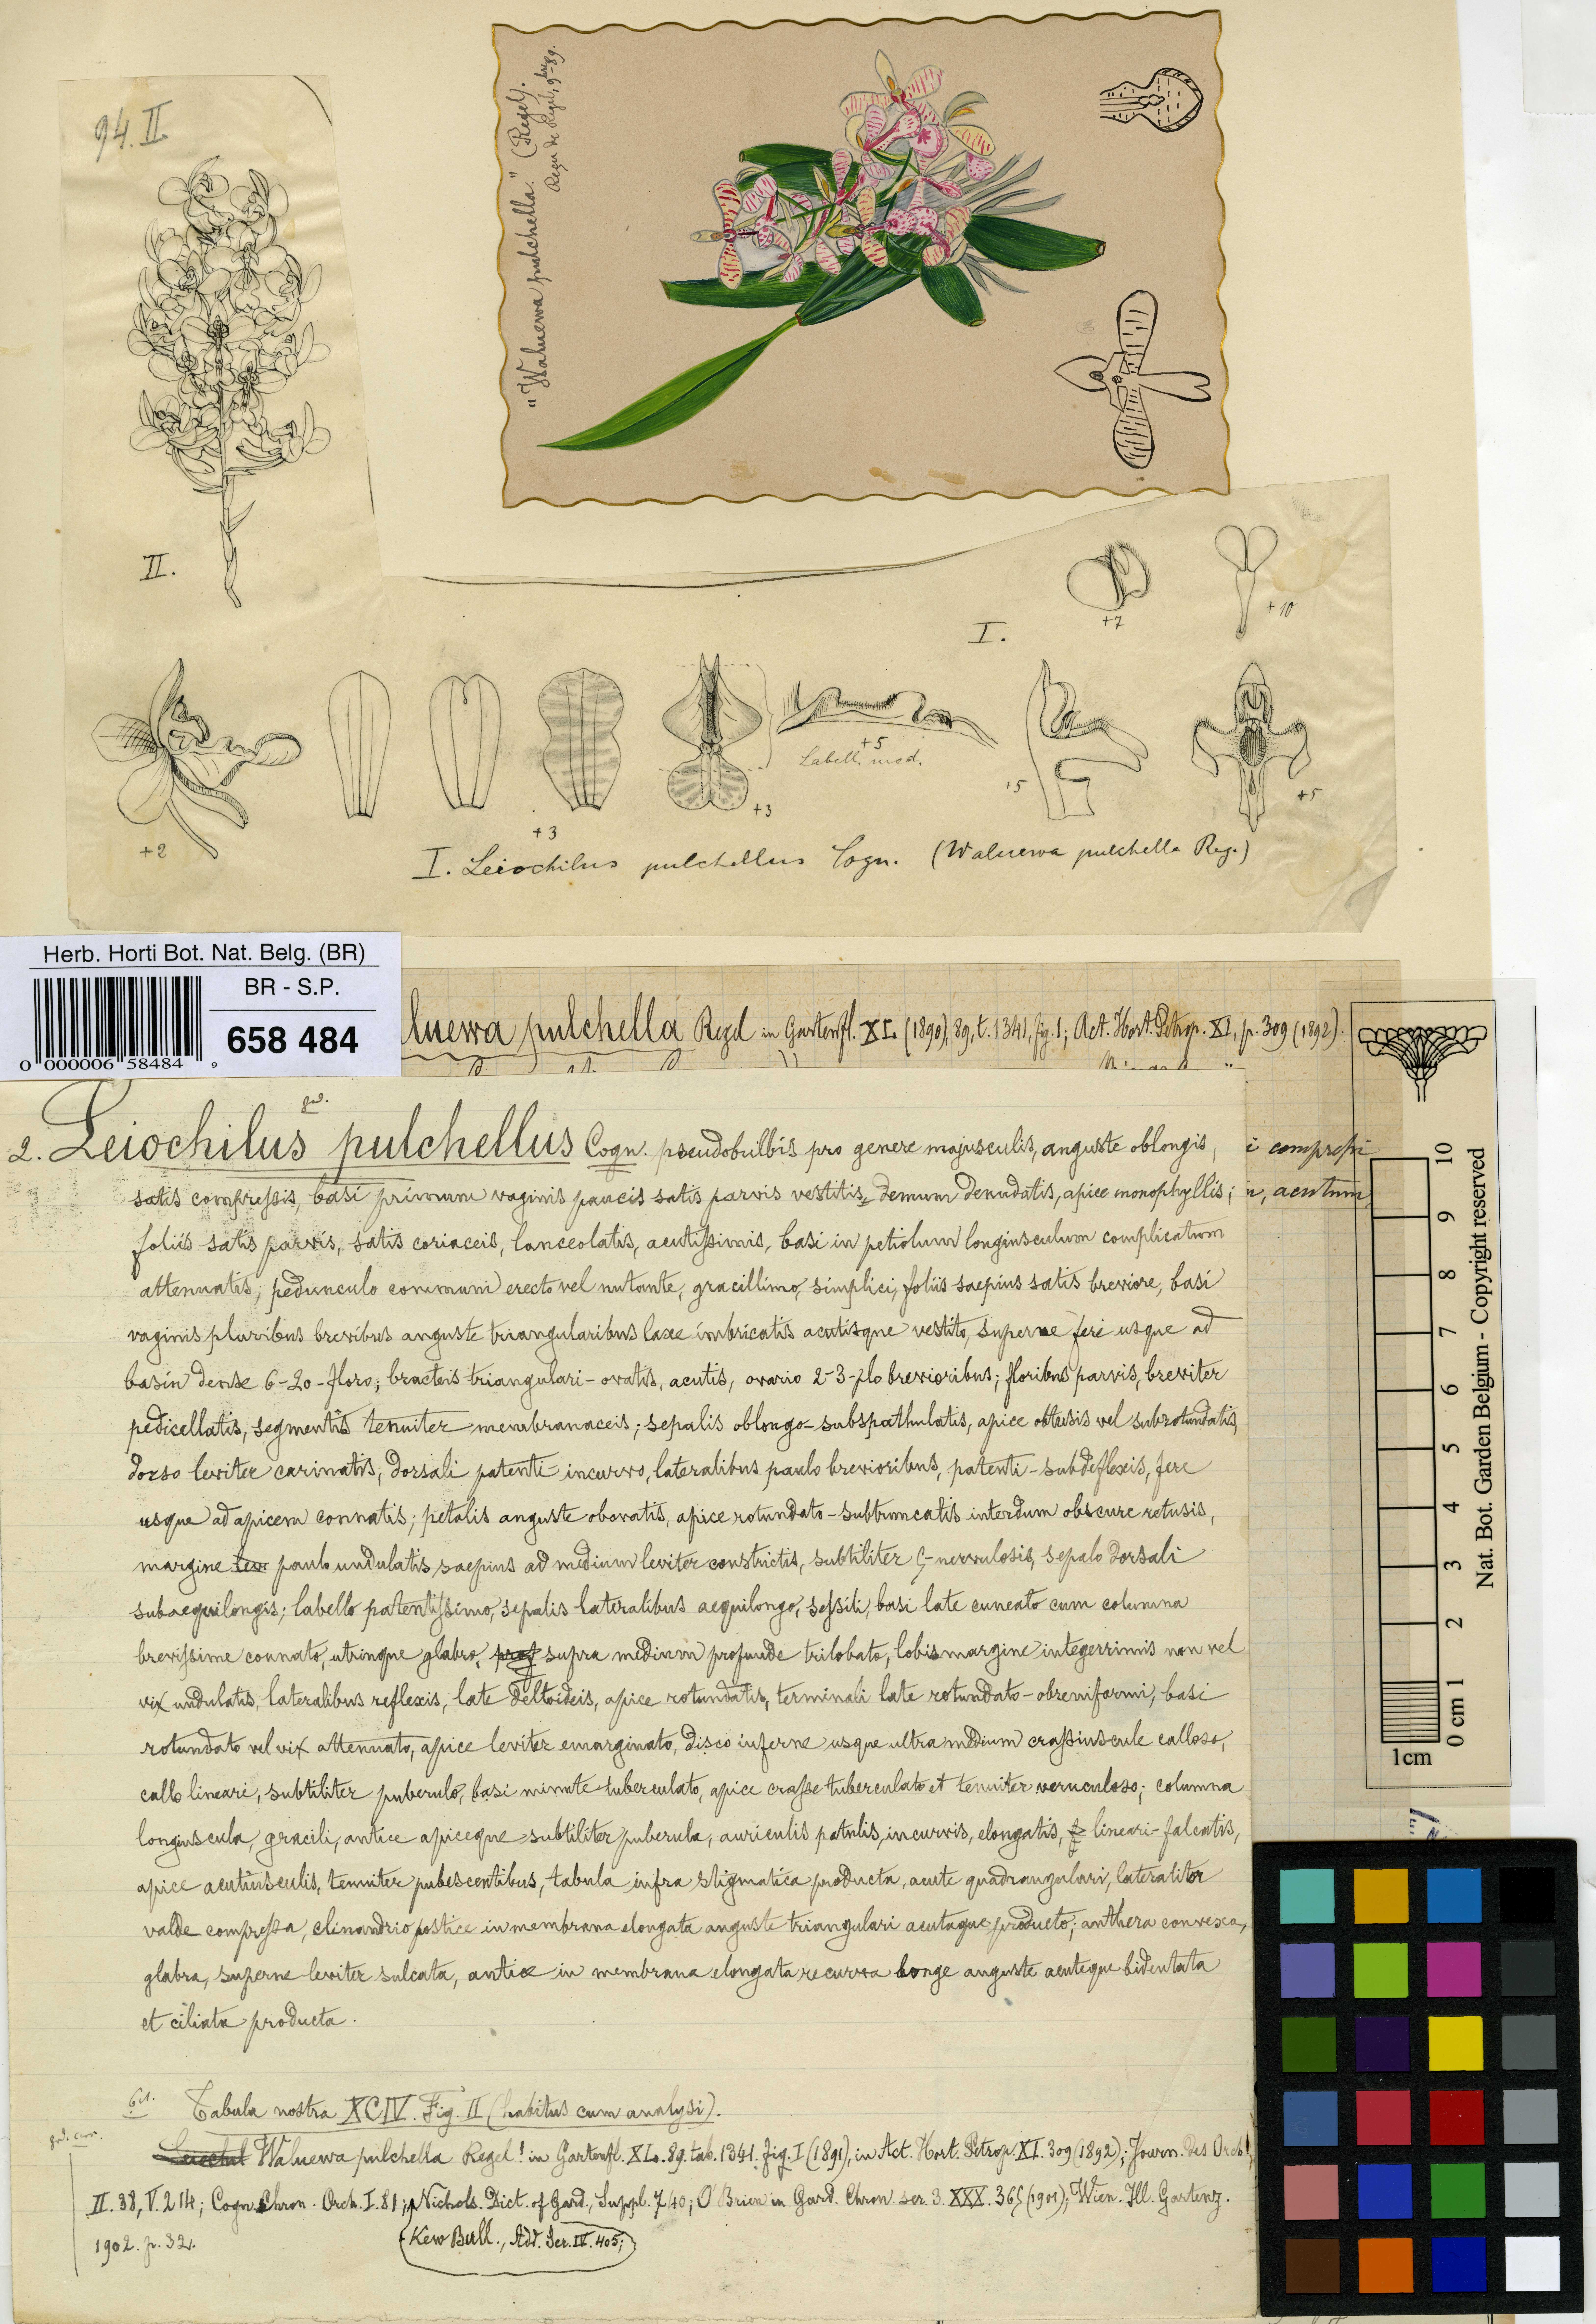 94. II
"Waluewa pulchella." (Regel).
Regn de Regel, 9bre 89.
II.
I.
+7
+10
+2
+3
+3
+5
Labell. med.
+5
+5
I. Leiochilus pulchellus Cogn. (Waluewa pulchella Reg.)
Herb. Horti Bot. Nat. Belg. (BR)
BR - S.P.
658 484
0 000006 58484 9
luewa pulchella Regel in Gartenfl. XL (1890), 89, t. 1341, fig. 1; Act. Hort. Petrop. XI, p. 309 (1892).
2. Leiochilus pulchellus Cogn. pseudobulbis pro genere majusculis, anguste oblongis,
i compressi
satis compressis, basi primum vaginis paucis satis parvis vestitis, demum denudatis, apice monophyllis;
n, acutum,
foliis satis parvis, satis coriaceis, lanceolatis, acutissimis, basi in petiolum longiusculum complicatum
attenuatis; pedunculo communi erecto vel nutante, gracillimo, simplici, foliis saepius satis breviore, basi
vaginis pluribus brevibus anguste triangularibus laxe imbricatis acutisque vestito, superne fere usque ad
basin dense 6-20-floro; bracteis triangulari-ovatis, acutis, ovario 2-3-plo brevioribus; floribus parvis, breviter
pedicellatis, segmentis tenuiter membranaceis; sepalis oblongo-subspathulatis, apice obtusis vel subrotundatis,
dorso leviter carinatis, dorsali patenti incurvo, lateralibus paulo brevioribus, patenti-subdeflexis, fere
usque ad apicem connatis; petalis anguste obovatis, apice rotundato-subtruncatis interdum obscure retusis,
margine lev paulo undulatis saepius ad medium leviter constrictis, subtiliter 5-nervulosis, sepalo dorsali
subaequilongis; labello patentissimo, sepalis lateralibus aequilongo, sessili, basi late cuneato cum columna
brevissime connato, utrinque glabro, prof supra medium profunde trilobato, lobis margine integerrimis non vel
vix undulatis, lateralibus reflexis, late deltoideis, apice rotundatis, terminali late rotundato-obreniformi, basi
rotundato vel vix attenuato, apice leviter emarginato, disco inferne usque ultra medium crassiuscule calloso,
callo lineari, subtiliter puberulo, basi minute tuberculato, apice crasse tuberculato et tenuiter verruculoso; columna
longiuscula, gracili, antice apiceque subtiliter puberula, auriculis patulis, incurvis, elongatis, lineari-falcatis,
apice acutiusculis, tenuiter pubescentibus, tabula infra stigmatica producta, acute quadrangulari, lateraliter
valde compressa, clinandrio postice in membrana elongata anguste triangulari acutaque producto; anthera convexa,
glabra, superne leviter sulcata, antice in membrana elongata recurva longe anguste acuteque bidentata
et ciliata producta.
Tabula nostra XCIV. Fig. II (habitus cum analysi).
Leiochil Waluewa pulchella Regel! in Gartenfl. XL. 89. tab. 1341. fig. I (1891), in Act. Hort. Petrop. XI. 309 (1892); Journ. des Orch.
II. 38, V. 214; Cogn. Chron. Orch. I. 81; Nichols. Dict. of Gard., Suppl. 740; O'Brien in Gard. Chron. ser. 3. XXX. 365 (1901); Wien. Ill. Gartenz.
1902. p. 32.
Kew Bull., Add. Ser. IV. 405;
10
9
8
7
6
5
4
3
2
0 cm 1
1cm
Nat. Bot. Garden Belgium - Copyright reserved